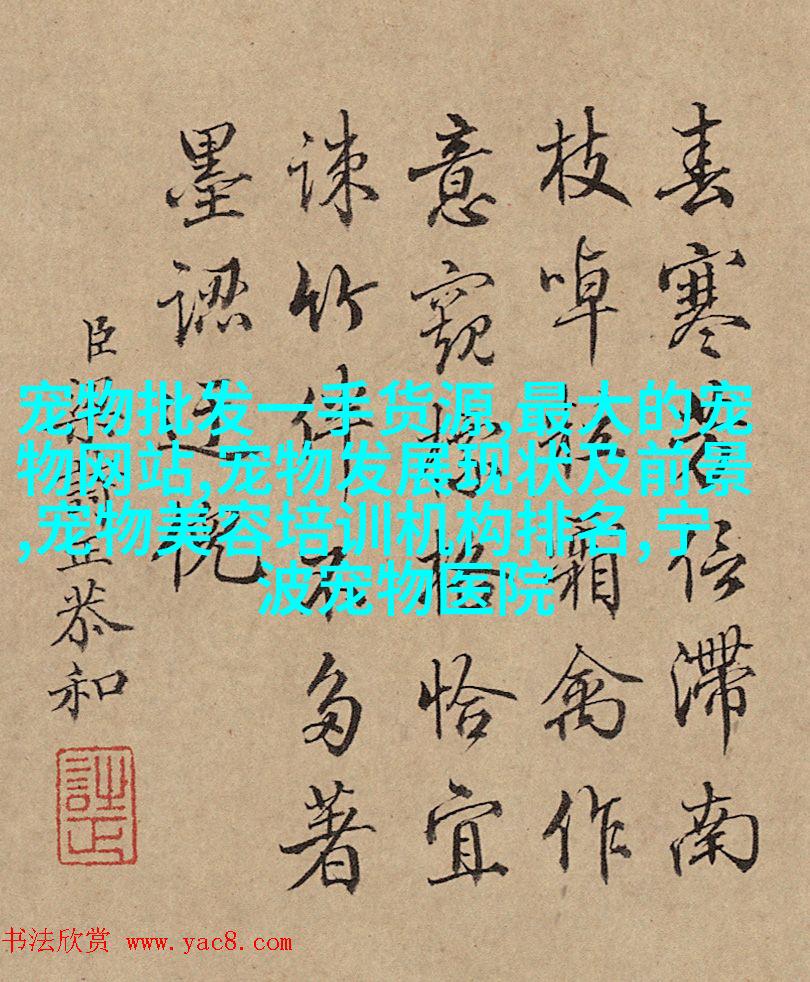 春寒信滯南
枝啅霜禽作
意窺格恰宜
竹伴不多著
墨認
臣梁詩正恭和
宠物批发一手货源,最大的宠
物网站,宠物发展现状及前景
,宠物美容培训机构排名,宁
波宠物医院
书法欣赏 www.yac8.com